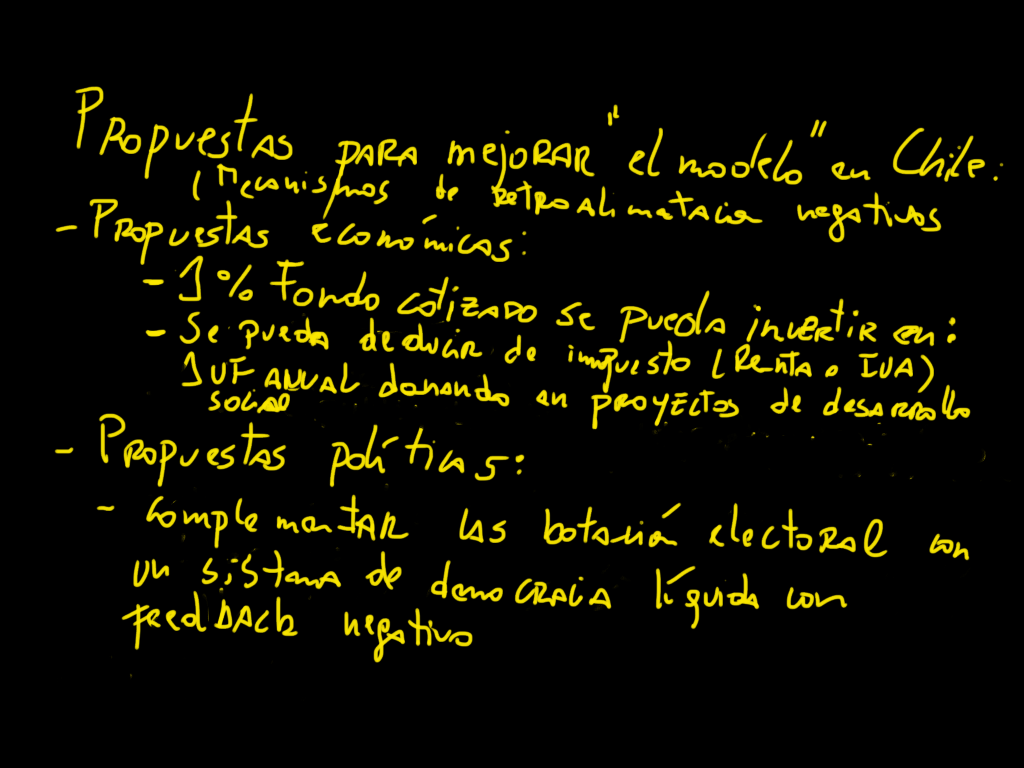 Propuestas para mejorar "el modelo" en Chile:
(Mecanismos de retroalimentación negativos
- Propuestas económicas:
- 1% Fondo cotizado se pueda invertir en:
- Se pueda deducir de impuesto (Renta o IVA)
1 UF anual donando en proyectos de desarrollo
social
- Propuestas políticas:
- complementar las botación electoral con
un sistema de democracia líquida con
feedback negativo